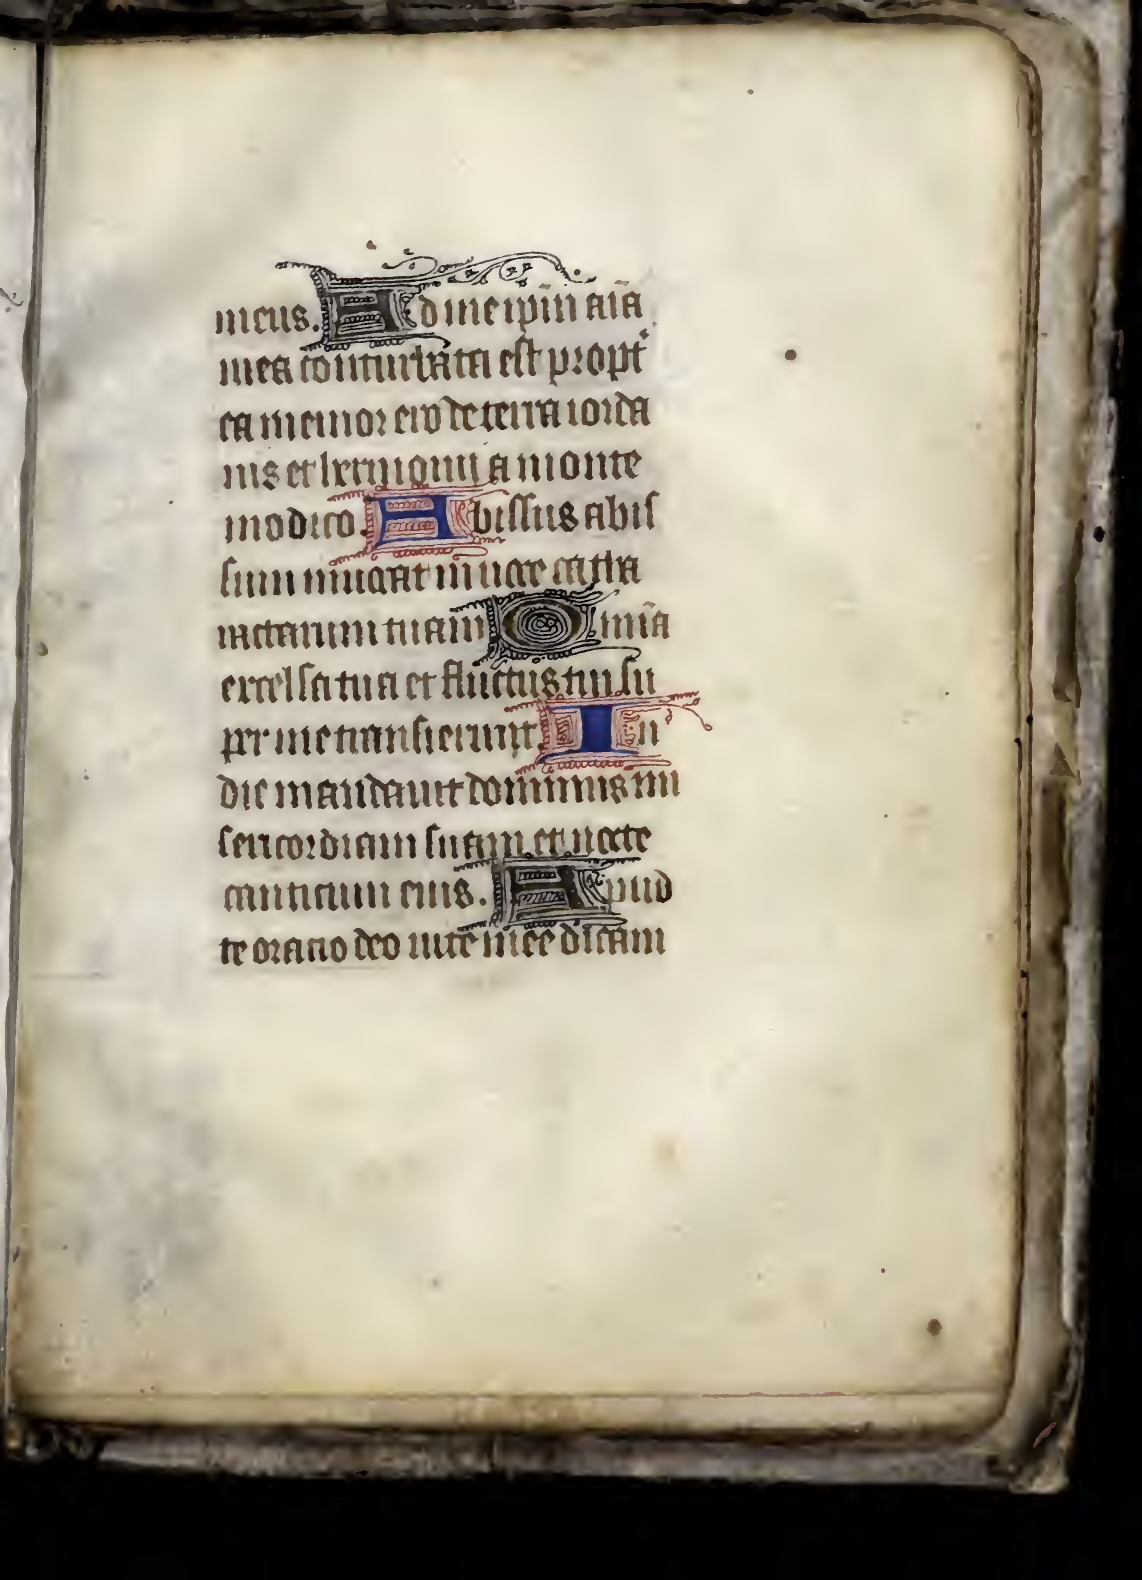 meus. Ad me ip̄m aīa
mea conturbata est propt̾
ea memor ero de terra iorda
nis et hermonii a monte
modico. Abissus abis
sum inuocat in uoce cata
ractarum tuarum Omīa
excelsa tua et fluctus tui su
per me transierunt. In
die mandauit dominus mi
sericordiam suam et nocte
canticum eius. Apud
te oratio deo uite mee dicam